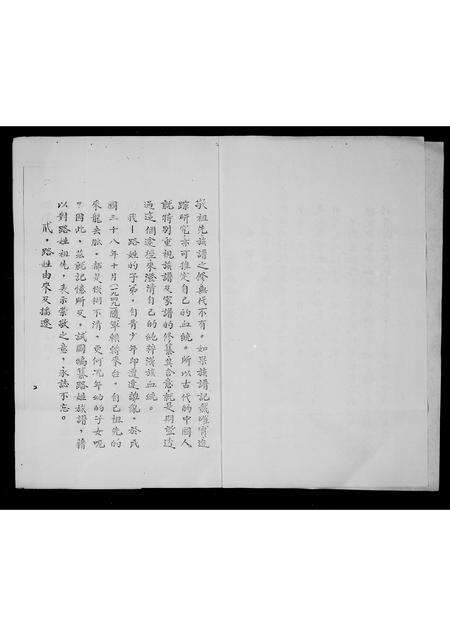 敬祖先族譜之修無代不有。如果族譜記載確實追
踪研究亦可推定自己的血統。所以古代的中國人
就特別重視族譜及家譜的修纂其含意就是期望透
過這個途徑來澄清自己的純粹漢族血統。
我—路姓的子弟，自青少年即遭逢離亂。於民
國三十八年十月(一九四九)隨軍輾轉來台。自己祖先的
來龍去脈，都是模糊不清，更何況年幼的子女呢
？因此，茲就記憶所及，試圖編纂路姓族譜，藉
以對路姓祖先，表示崇敬之意，永誌不忘。
貳．路姓由來及播遷